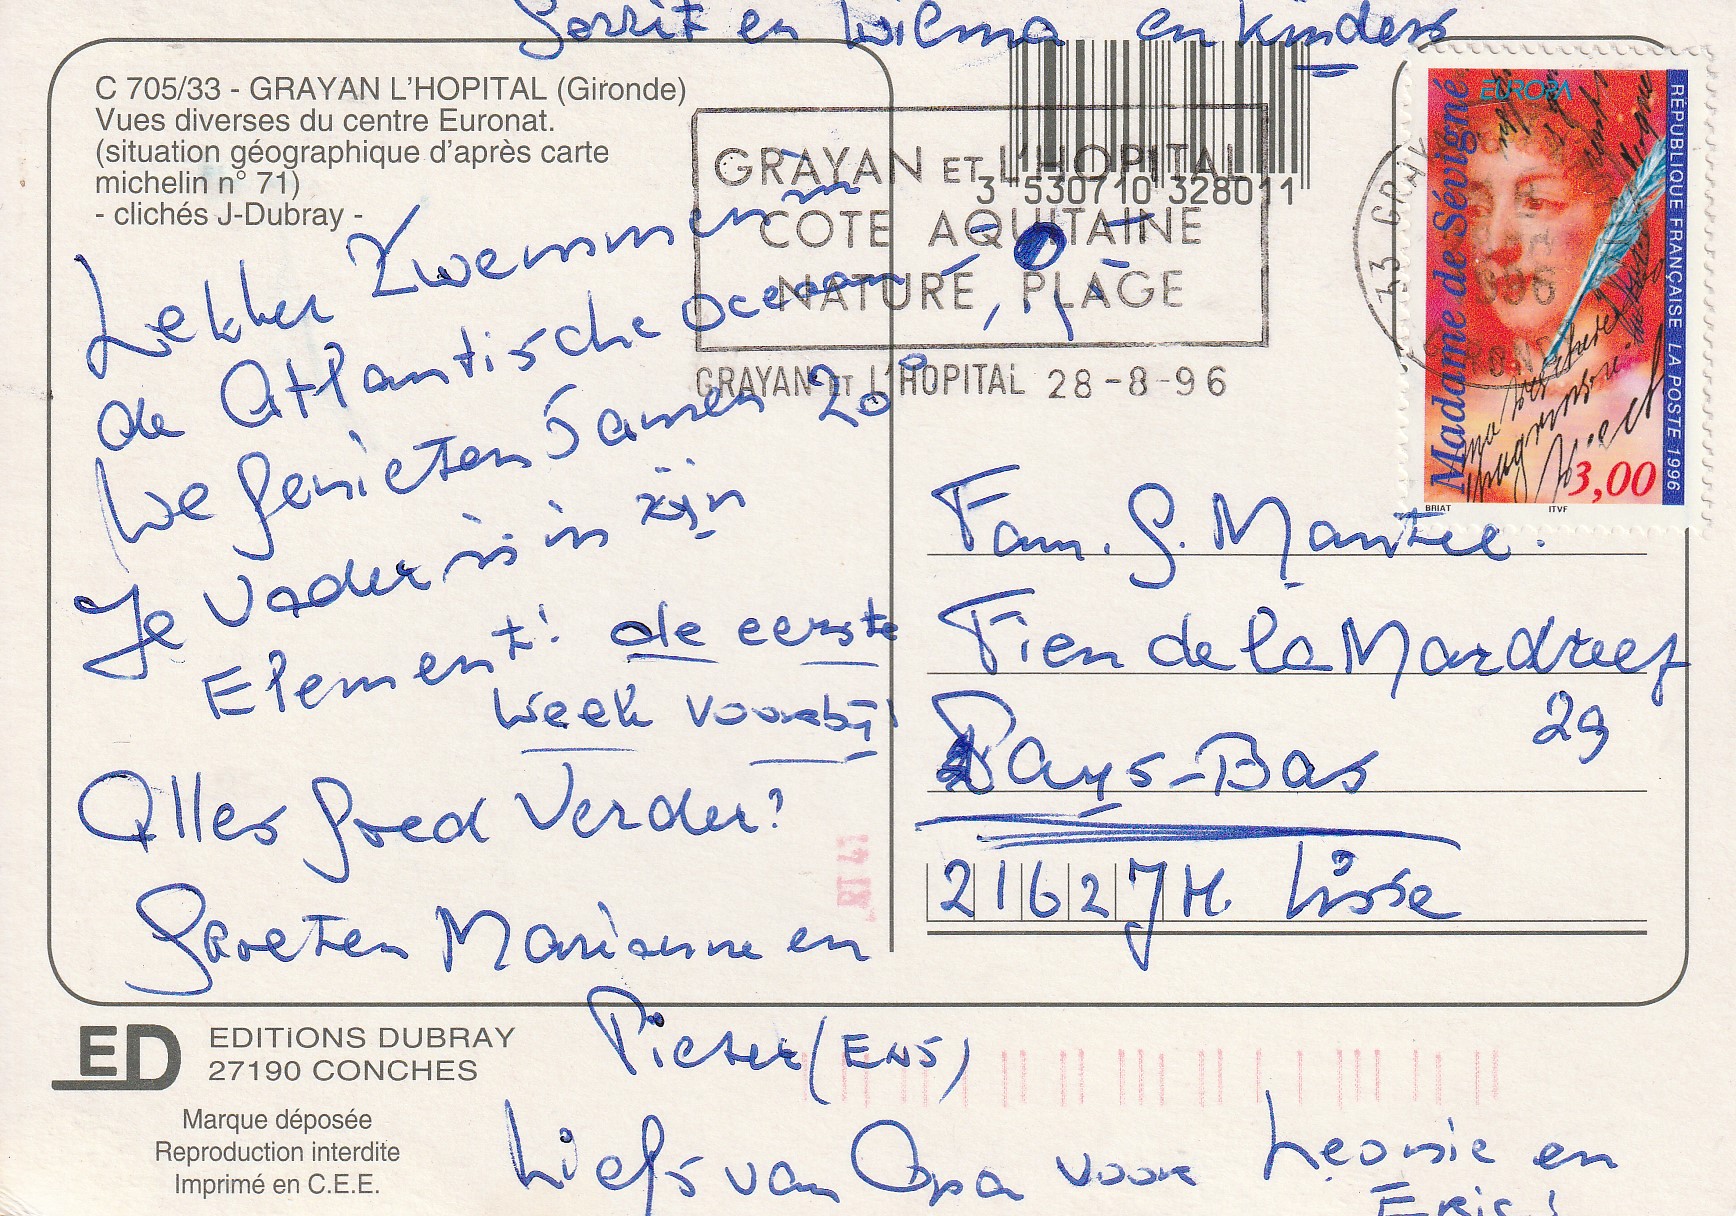 Gerrit en Wilma en Kinders
C 705/33 - GRAYAN L'HOPITAL (Gironde)
Vues diverses du centre Euronat.
(situation géographique d'après carte
michelin n° 71)
- clichés J-Dubray -
3 530710 328011
GRAYAN ET L'HOPITAL
COTE AQUITAINE
NATURE PLAGE
GRAYAN ET L'HOPITAL 28-8-96
EUROPA
Madame de Sévigné
RÉPUBLIQUE FRANÇAISE LA POSTE 1996
3,00
BRIAT ITVF
Lekker Zwemmen in
de Atlantische oceaan
We genieten samen 20°
Je vader is in zijn
Element! de eerste
week voorbij!
Alles goed verder?
Groeten Marianne en
Pieter (ENS)
Liefs van Opa voor Leonie en
Eric!
Fam. G. Mantel.
Fien de la Mardreef
29
Pays-Bas
2162 JH. Lisse
ED
EDITIONS DUBRAY
27190 CONCHES
Marque déposée
Reproduction interdite
Imprimé en C.E.E.